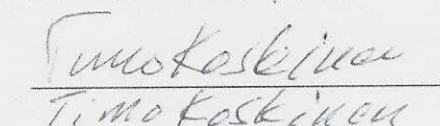 Timo Koskinen
Timo Koskinen